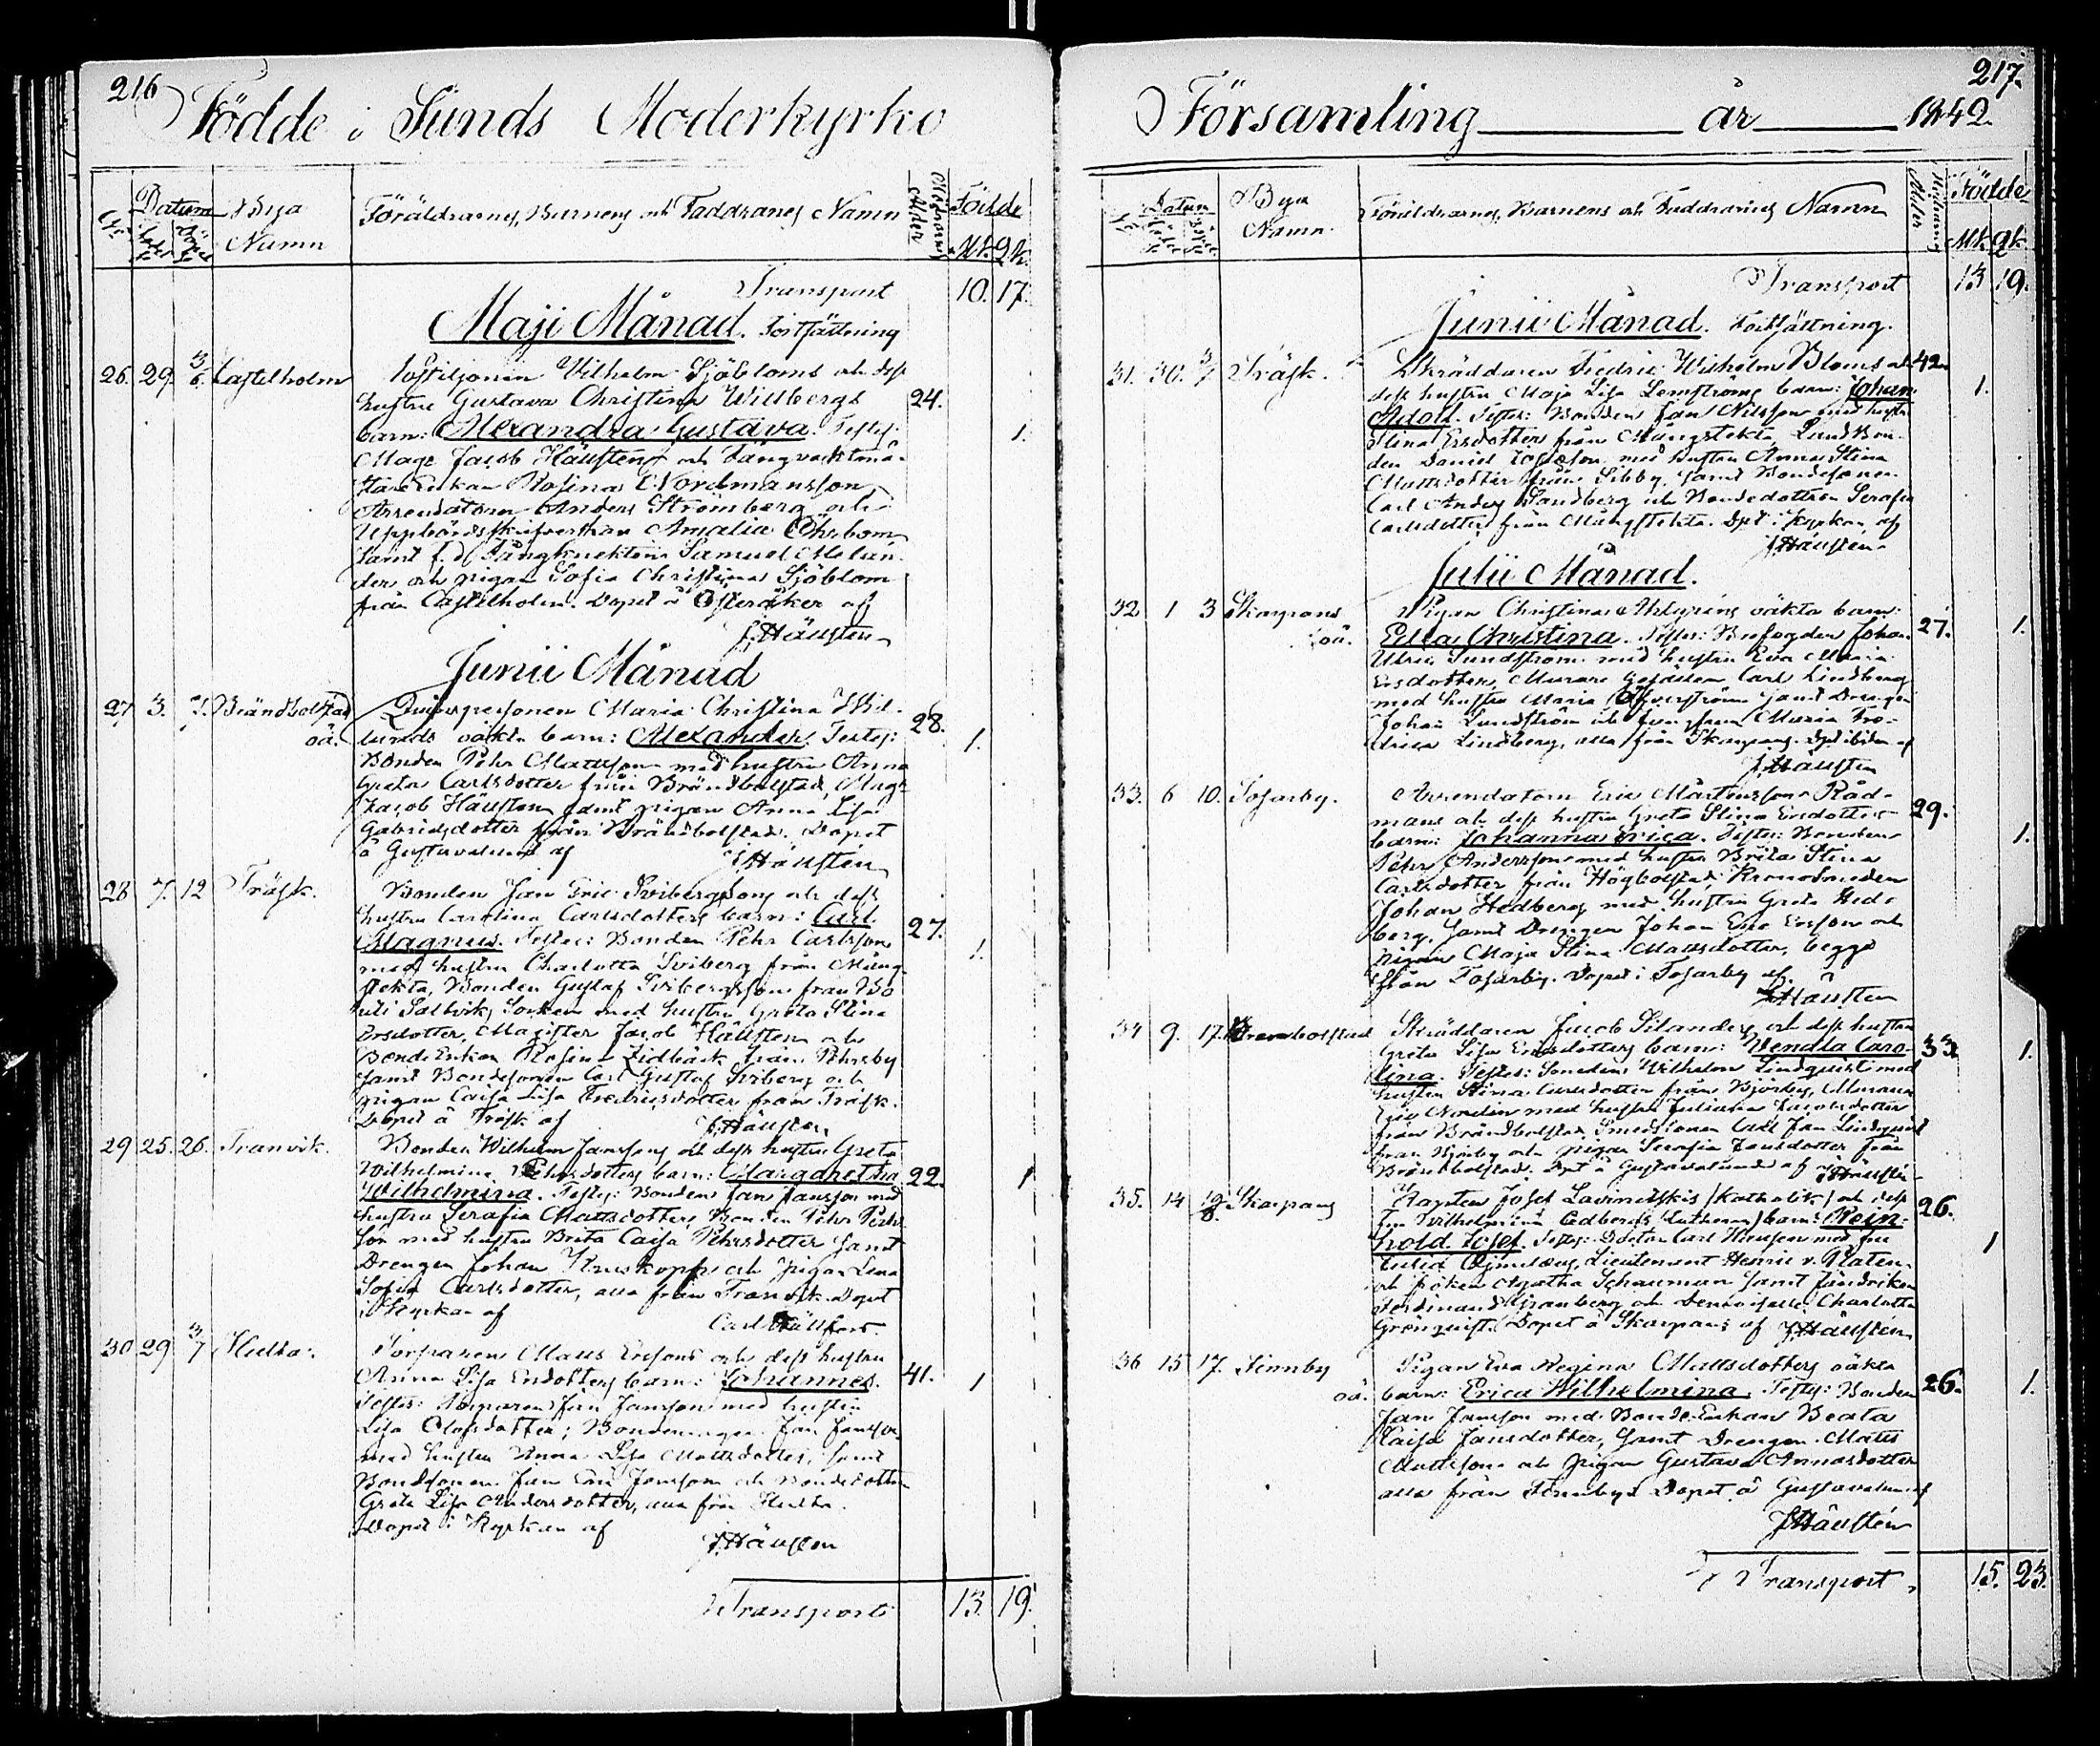 216
Födde i Sunds Moderkyrko
Datum
Bya
Namn
Föräldrarnes, Barnens och Faddrarnes Namn
Mödrarnes
Ålder
Födde
Mk. Qk.
Transport 10. 17.
Maji Månad. Fortsättning
26. 29. 3/6. Castelholm Postiljonen Vilhelm Sjöbloms och dess
hustru Gustava Christina Willbergs 24.
barn: Alexandra Gustava. Testes: 1.
Mag: Jacob Häusten och Fångvaktmä-
stare Enkan Rosina Nordmansson,
Arrendatorn Anders Strömberg och
Uppbördsskrifverskan Amalia Öhrbom
samt f. d. Fångknekten Samuel Melan-
der och pigan Sofia Christina Sjöblom
från Castelholm. Döpet å Österåker af
J. Häusten
Junii Månad
27 3. 7. Brändbolstad Qvinspersonen Maria Christina Wid-
oä. lunds oäkta barn: Alexander. Testes: 28. 1.
Bonden Pehr Mattsson med hustru Anna
Greta Carlsdotter från Brändbolstad, Mag:
Jacob Häusten samt pigan Anna Lisa
Gabrielsdotter från Brändbolstad. Döpet
å Gustavalund af J. Häusten
28 7. 12 Träsk. Bonden Jan Eric Svibergssons och dess
hustru Carolina Carlsdotters barn: Carl 27.
Magnus. Testes: Bonden Pehr Carlsson 1.
med hustru Charlotta Sviberg från Mång-
stekta, Bonden Gustaf Svibergsson från
i Saltvik Socken med hustru Greta Stina
Ersdotter, Magister Jacob Häusten och
BondeEnkan Rosina Lidbäck från Pehrsby
samt Bondesonen Carl Gustaf Sviberg och
pigan Caisa Lisa Fredricsdotter från Träsk.
Döpet å Träsk af J. Häusten
29 25. 26. Tranvik. Bonden Wilhelm Janssons och dess hustru Greta
Wilhelmina Pehrsdotters barn: Margaretha 22. 1
Wilhelmina. Testes: Bonden Jan Jansson med
hustru Serafia Mattsdotter, Bonden Pehr Pehrs-
son med hustru Brita Caisa Pehrsdotter samt
Drengen Johan Kruskopf och pigan Lena
Sofia Carlsdotter, alla från Tranvik. Döpet
i Kyrkan af Carl
30 29 3/7 Hulta. Torparen Matts Erssons och dess hustru
Anna Lisa Ersdotters barn: Johannes. 41. 1
Testes: Torparen Jan Jansson med hustru
Lisa Olofsdotter; Bondemågen Jan Jansson
med hustru Anna Lisa Mattsdotter, samt
Bondsonen Jan Eric Jansson och Bondedottren
Greta Lisa Andersdotter, alla från Hulta.
Döpet i Kyrkan af
J. Häusten
Transport 13. 19.
217.
Församling år 1842.
Datum
Bya
Namn.
Föräldrarnes, Barnens och Faddrarnes Namn
Mödrarnes
Ålder
Födde
Mk. Qk.
Transport 13 19.
Junii Månad. Fortsättning.
31. 30. 3/7 Träsk. Skräddaren Fredric Wilhelm Bloms och 42.
dess hustru Maja Lisa Lemströms barn: Johan 1.
Adolf. Testes: Bonden Jan Nilsson med hustru
Stina Ersdotter från Mångstekta, Landbon-
den Daniel Josefson med hustru Anna Stina
Mattsdotter från Sibby, samt Bondesonen
Carl Anders Sandberg och Bondedottren Serafia
Carlsdotter från Mångstekta. Döpt i Kyrkan af
J. Häusten
Julii Månad.
32 1 3 Skarpans Pigan Christina Ahlgrens oäkta barn:
oä. Eulla Christina. Testes: Brofogden Johan 27. 1.
Ulric Sundström med hustru Eva Maria
Ersdotter, Murare Gesällen Carl Lindberg
med hustru Maria Öfverström samt Drengen
Johan Lundström och Jungfrun Maria Fre-
drica Lindberg, alla från Skarpans. Döpt ibidem af
J. Häusten
33. 6 10. Tosarby. Arrendatorn Eric Mårtenssons Råd-
mans och dess hustru Greta Stina Ersdotters 29.
barn: Johanna Erica. Testes: Bonden 1.
Pehr Andersson med hustru Brita Stina
Carlsdotter från Högbolstad, Kronosmeden
Johan Hedberg med hustru Greta Hed-
berg, samt Drengen Johan Eric Ersson och
pigan Maja Stina Mattsdotter, begge
från Tosarby. Döpet i Tosarby af
J. Häusten
34 9. 17. Brändbolstad Skräddaren Jacob Silanders och dess hustru
Greta Lisa Ersdotters barn: Wendla Caro- 33. 1.
lina. Testes: Smeden Wilhelm Lindquist med
hustru Stina Carlsdotter från Björby, Muraren
Eric Nordin med hustru Juliana Jacobsdotter
från Brändbolstad, Smedssonen Carl Jan Lindquist
från Björby och pigan Serafia Jansdotter från
Brändbolstad. Döpt å Gustavalund af J. Häusten
35. 14 19/8. Skarpans Kapten Josef Lavinetskis (Katholik) och dess
fru Wilhelmina Cedbergs (Lutheran) barn: Rein- 26.
hold Josef. Testes: Doctor Carl med fru 1
Lieutenant Henric v. Platen
och fröken Agatha Schauman samt fändriken
Ferdinand Granberg och Demoiselle Charlotta
Grönquist. Döpet å Skarpans af J. Häusten
36 15 17. Finnby Pigan Eva Regina Mattsdotters oäkta
oä. barn: Erica Wilhelmina. Testes: Bonden 26. 1.
Jan Jansson med Bonde-Enkan Beata
Caisa Jansdotter, samt Drengen Matts
Mattsson och pigan Gustava Annasdotter
alla från Finnby. Döpet å Gustavalund af
J. Häusten
Transport 15. 23.